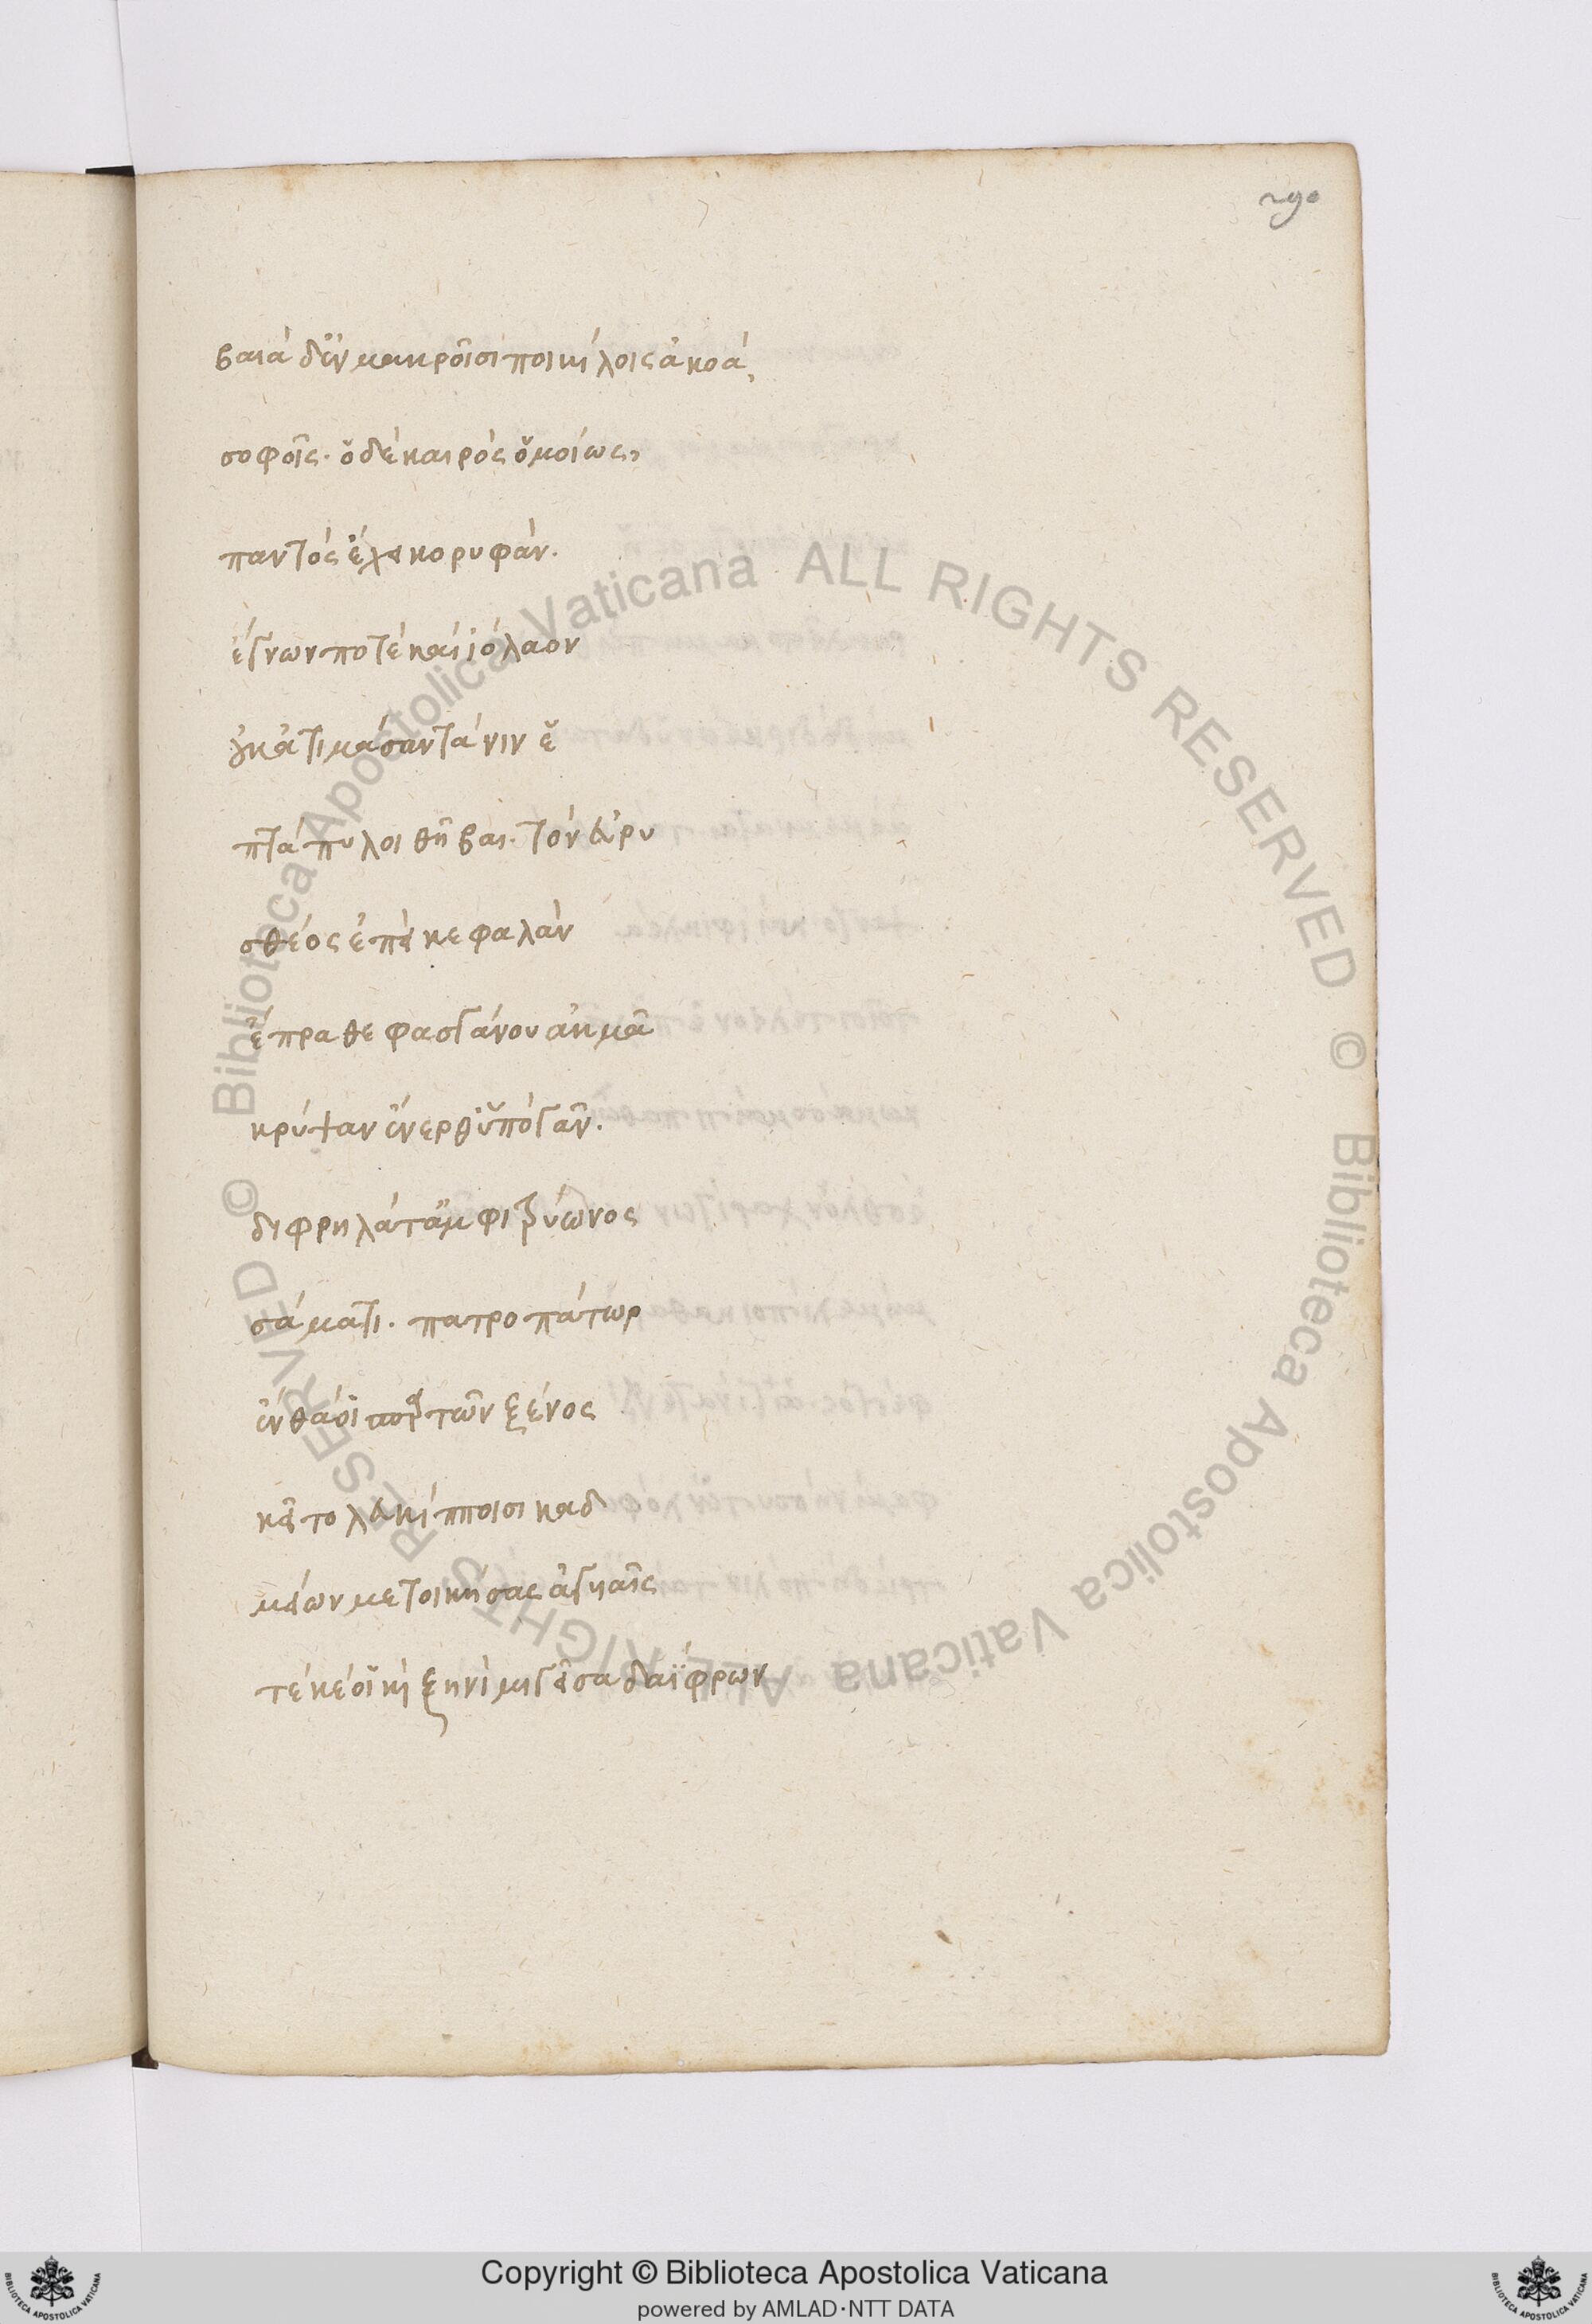 290
βαιὰ δ' ἐν μακροῖσι ποικίλοις ἀκοά,
σοφοῖς· ὁ δὲ καιρὸς ὁμοίως,
παντὸς ἔχει κορυφάν.
ἔγνων ποτὲ καὶ ἰόλαον
οὐκ ἀτιμάσαντά νιν ἑ
πτάπυλοι θῆβαι· τὸν εὐρυ
σθέος ἐπεὶ κεφαλὰν
ἔπραθε φασγάνου ἀκμᾶ
κρύψαν ἔνερθ' ὑπὸ γᾶν.
διφρηλάτα ἀμφιτρύωνος
σάματι. πατροπάτωρ
ἔνθά οἱ σπαρτῶν ξένος
κεῖτο λευκίπποισι καδ
μείων μετοικήσας ἀγυιαῖς
τέκέ οἱ καὶ ζηνὶ μιγεῖσα δαΐφρων
© Biblioteca Apostolica Vaticana ALL RIGHTS RESERVED © Biblioteca Apostolica Vaticana ALL RIGHTS RESERVED
Copyright © Biblioteca Apostolica Vaticana
powered by AMLAD·NTT DATA
BIBLIOTECA APOSTOLICA VATICANA
BIBLIOTECA APOSTOLICA VATICANA